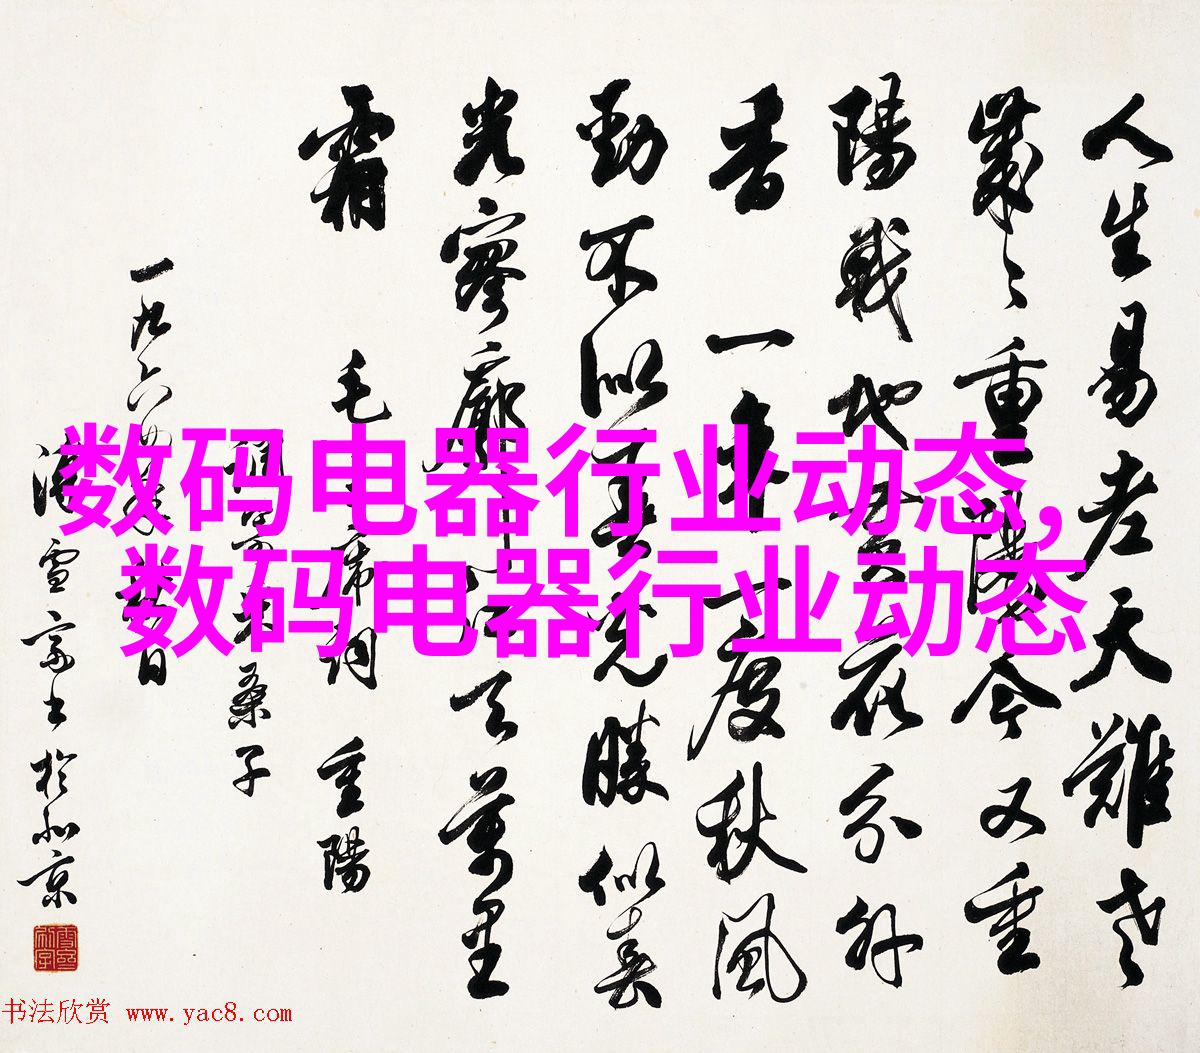 人生易老天難老
歲〻重陽今又重
陽戰地黃花分外
香 一年一度秋風
勁不似春光勝似春
光寥廓江天萬里
霜
毛主席詞 重陽
調寄采桑子
一九六 年 日
溥雪齋書於北京
数码电器行业动态,
数码电器行业动态
书法欣赏 www.yac8.com